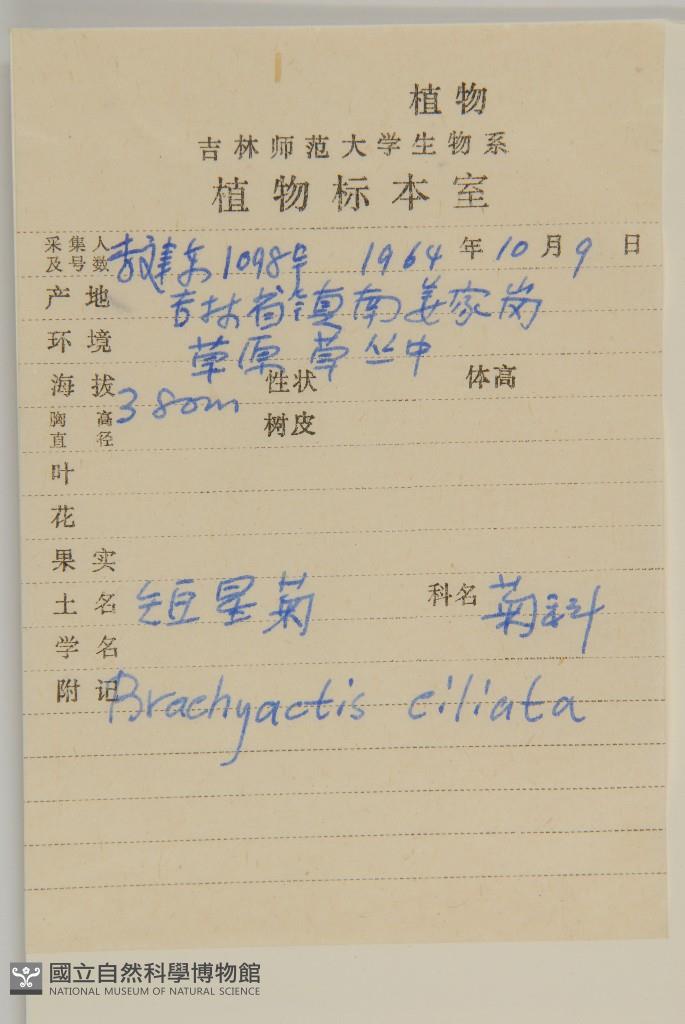 植物
吉林师范大学生物系
植物标本室
采集人及号数 建 1098号 1964年10月9日
产地 吉林省镇南姜家岗
环境 草原草丛中
海拔 380m 性状 体高
胸高直径 树皮
叶
花
果实
土名 短星菊 科名 菊科
学名
附记 Brachyactis ciliata
國立自然科學博物館
NATIONAL MUSEUM OF NATURAL SCIENCE